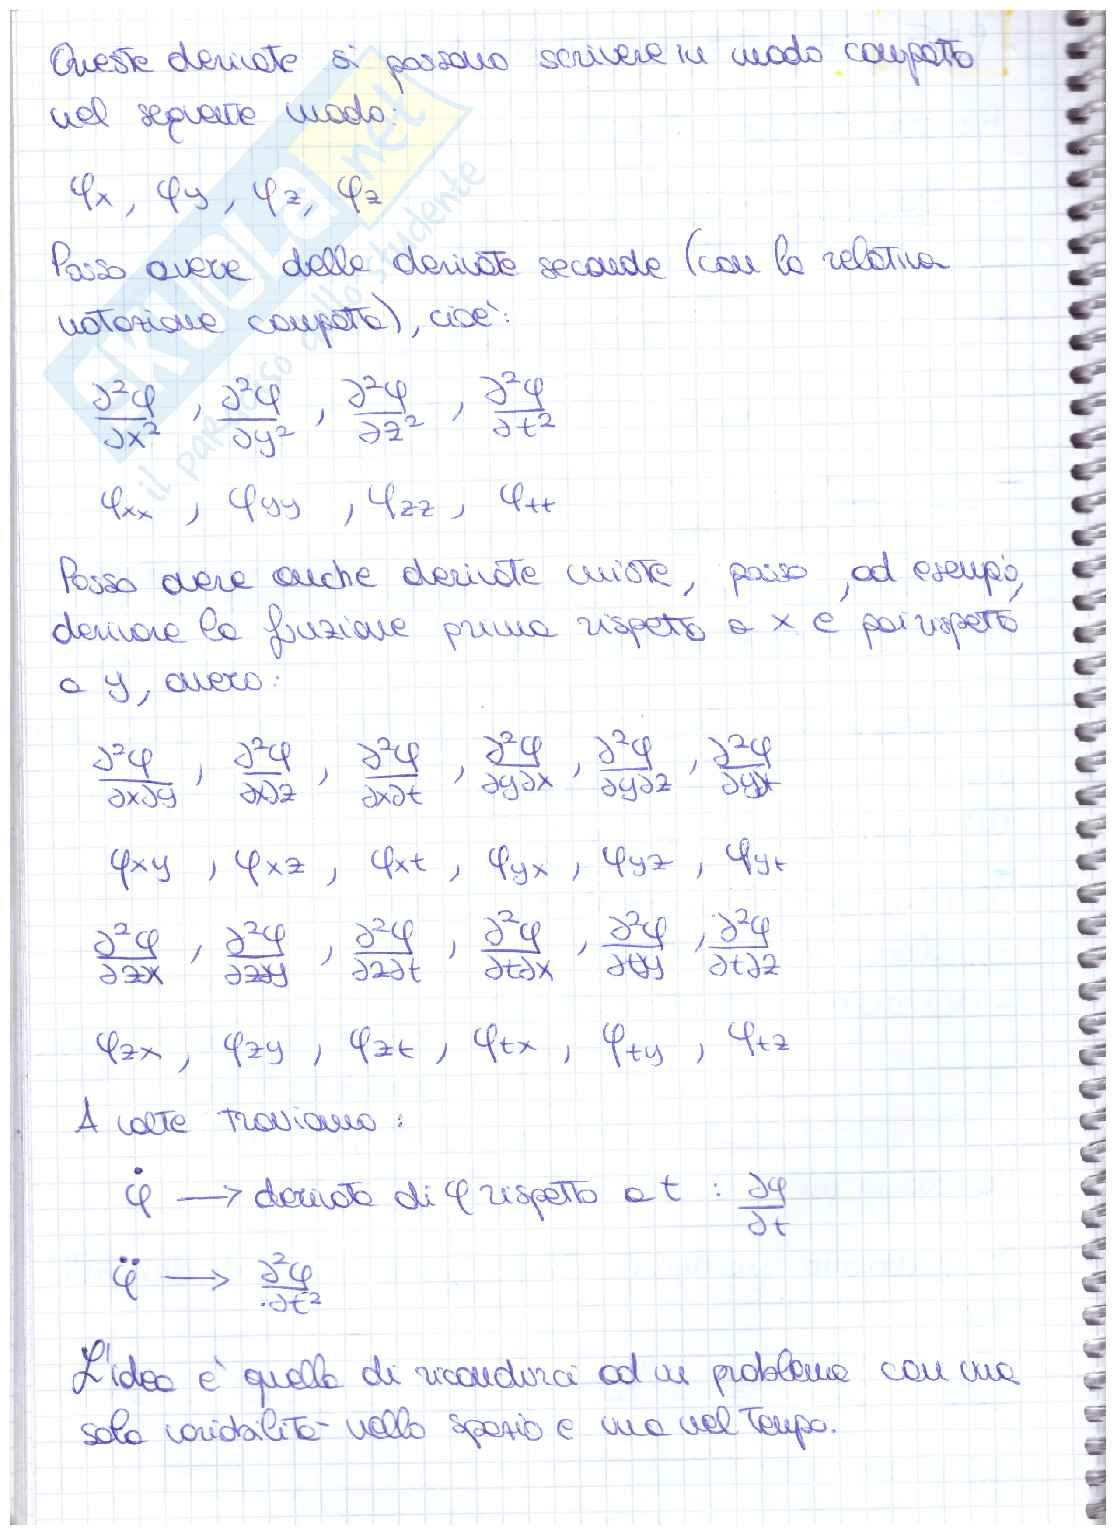 Queste derivate si possono scrivere in modo compatto
nel seguente modo:
φx, φy, φz, φz
Posso avere delle derivate seconde (con la relativa
notazione compatta), cioè:
∂²φ/∂x², ∂²φ/∂y², ∂²φ/∂z², ∂²φ/∂t²
φxx, φyy, φzz, φtt
Posso avere anche derivate miste, posso, ad esempio,
derivare la funzione prima rispetto a x e poi rispetto
a y, ovvero:
∂²φ/∂x∂y, ∂²φ/∂x∂z, ∂²φ/∂x∂t, ∂²φ/∂y∂x, ∂²φ/∂y∂z, ∂²φ/∂y∂t
φxy, φxz, φxt, φyx, φyz, φyt
∂²φ/∂z∂x, ∂²φ/∂z∂y, ∂²φ/∂z∂t, ∂²φ/∂t∂x, ∂²φ/∂t∂y, ∂²φ/∂t∂z
φzx, φzy, φzt, φtx, φty, φtz
A volte troviamo:
φ̇ → derivata di φ rispetto a t : ∂φ/∂t
φ̈ → ∂²φ/∂t²
L'idea è quella di ricondurci ad un problema con una
sola variabilità nello spazio e una nel tempo.
SKUOLA.net
il paradiso dello studente